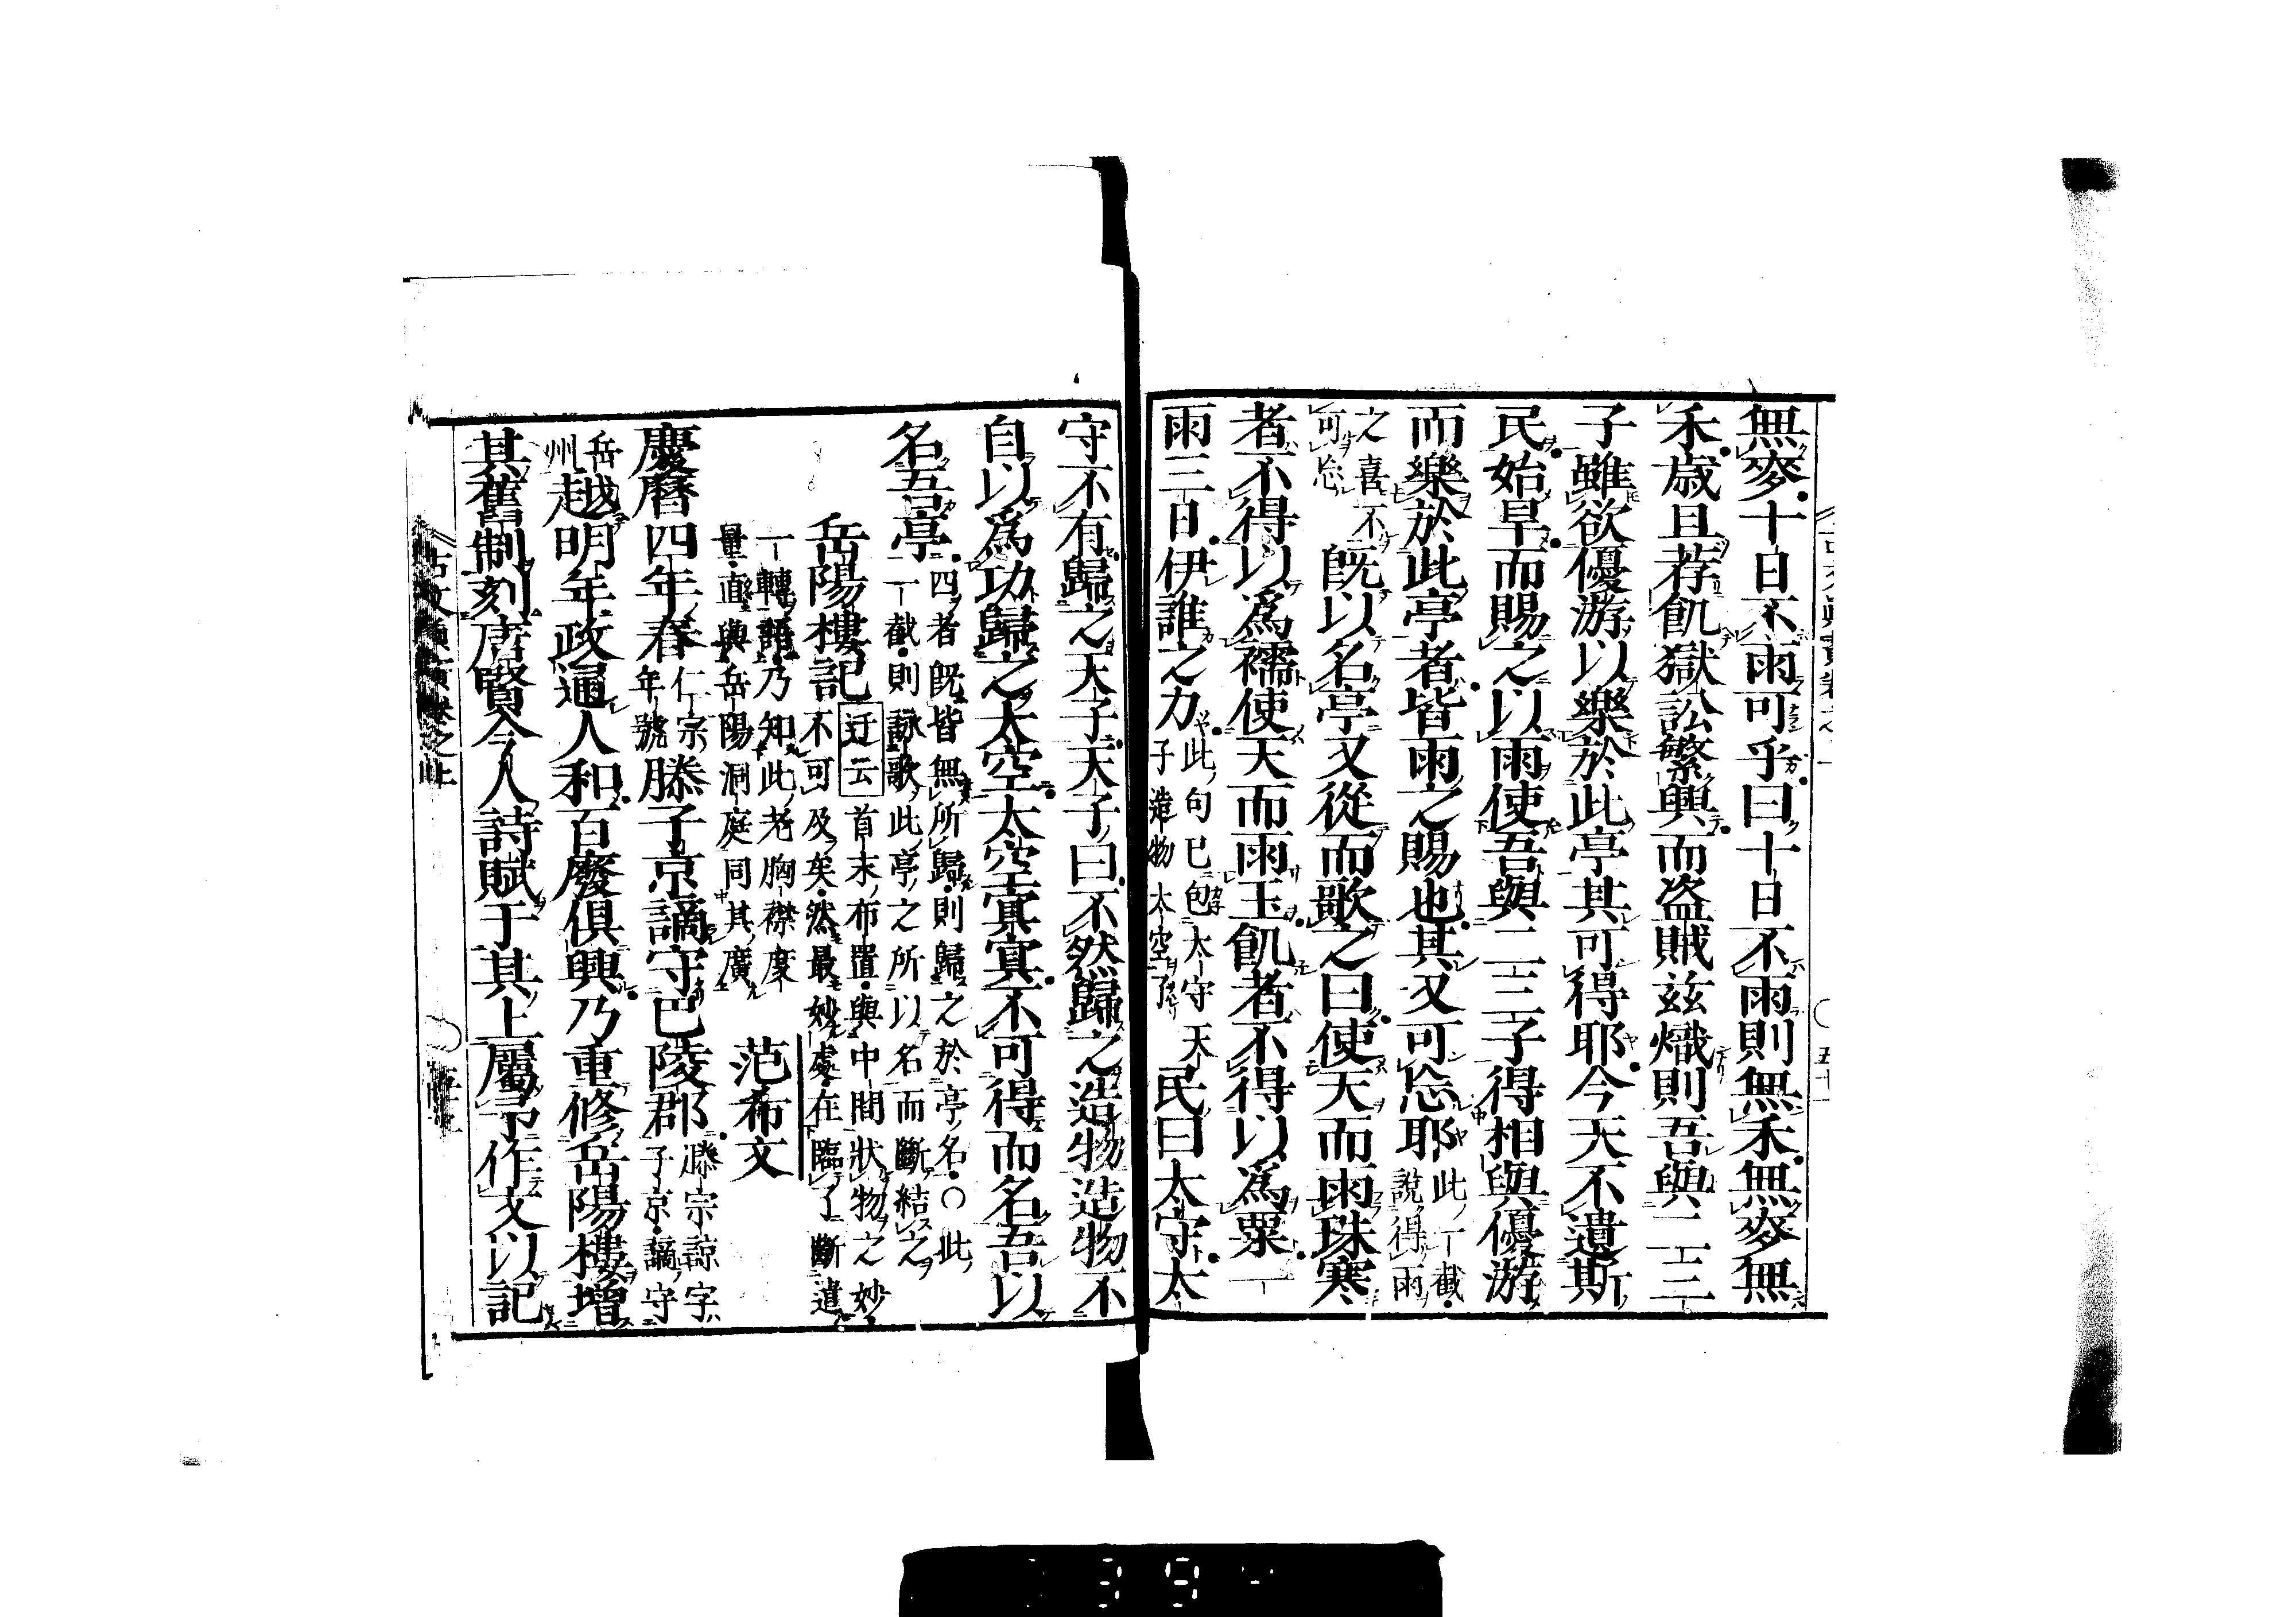 無麥十日不雨可乎曰十日不雨則無禾無麥無
禾歲且荐飢獄訟繁興而盗賊玆熾則吾與二三
子雖欲優游以樂於此亭其可得耶今天不遺斯
民始旱而賜之以雨使吾與二三子得相與優游
而樂於此亭者皆雨之賜也其又可忘耶此一截說得雨
之喜不可忘既以名亭又從而歌之曰使天而雨珠寒
者不得以為襦使天而雨玉飢者不得以為粟一
雨三日伊誰之力此句已包太守天子造物太空了民曰太守太
守不有歸之天子天子曰不然歸之造物造物不
自以為功歸之太空太空冥冥不可得而名吾以
名吾亭四者既皆無所歸則歸之於亭名○此一截則詠歌此亭之所以名而斷結之
岳陽樓記迂云首末布置與中間狀物之妙不可及矣然最妙處在臨了斷遣
一轉語乃知此老胸襟度量直與岳陽洞庭同其廣 范希文
慶曆四年春仁宗年號滕子京謫守巴陵郡滕宗諒字子京謫守
岳州越明年政通人和百廢俱興乃重修岳陽樓增
其舊制刻唐賢今人詩賦于其上屬予作文以記